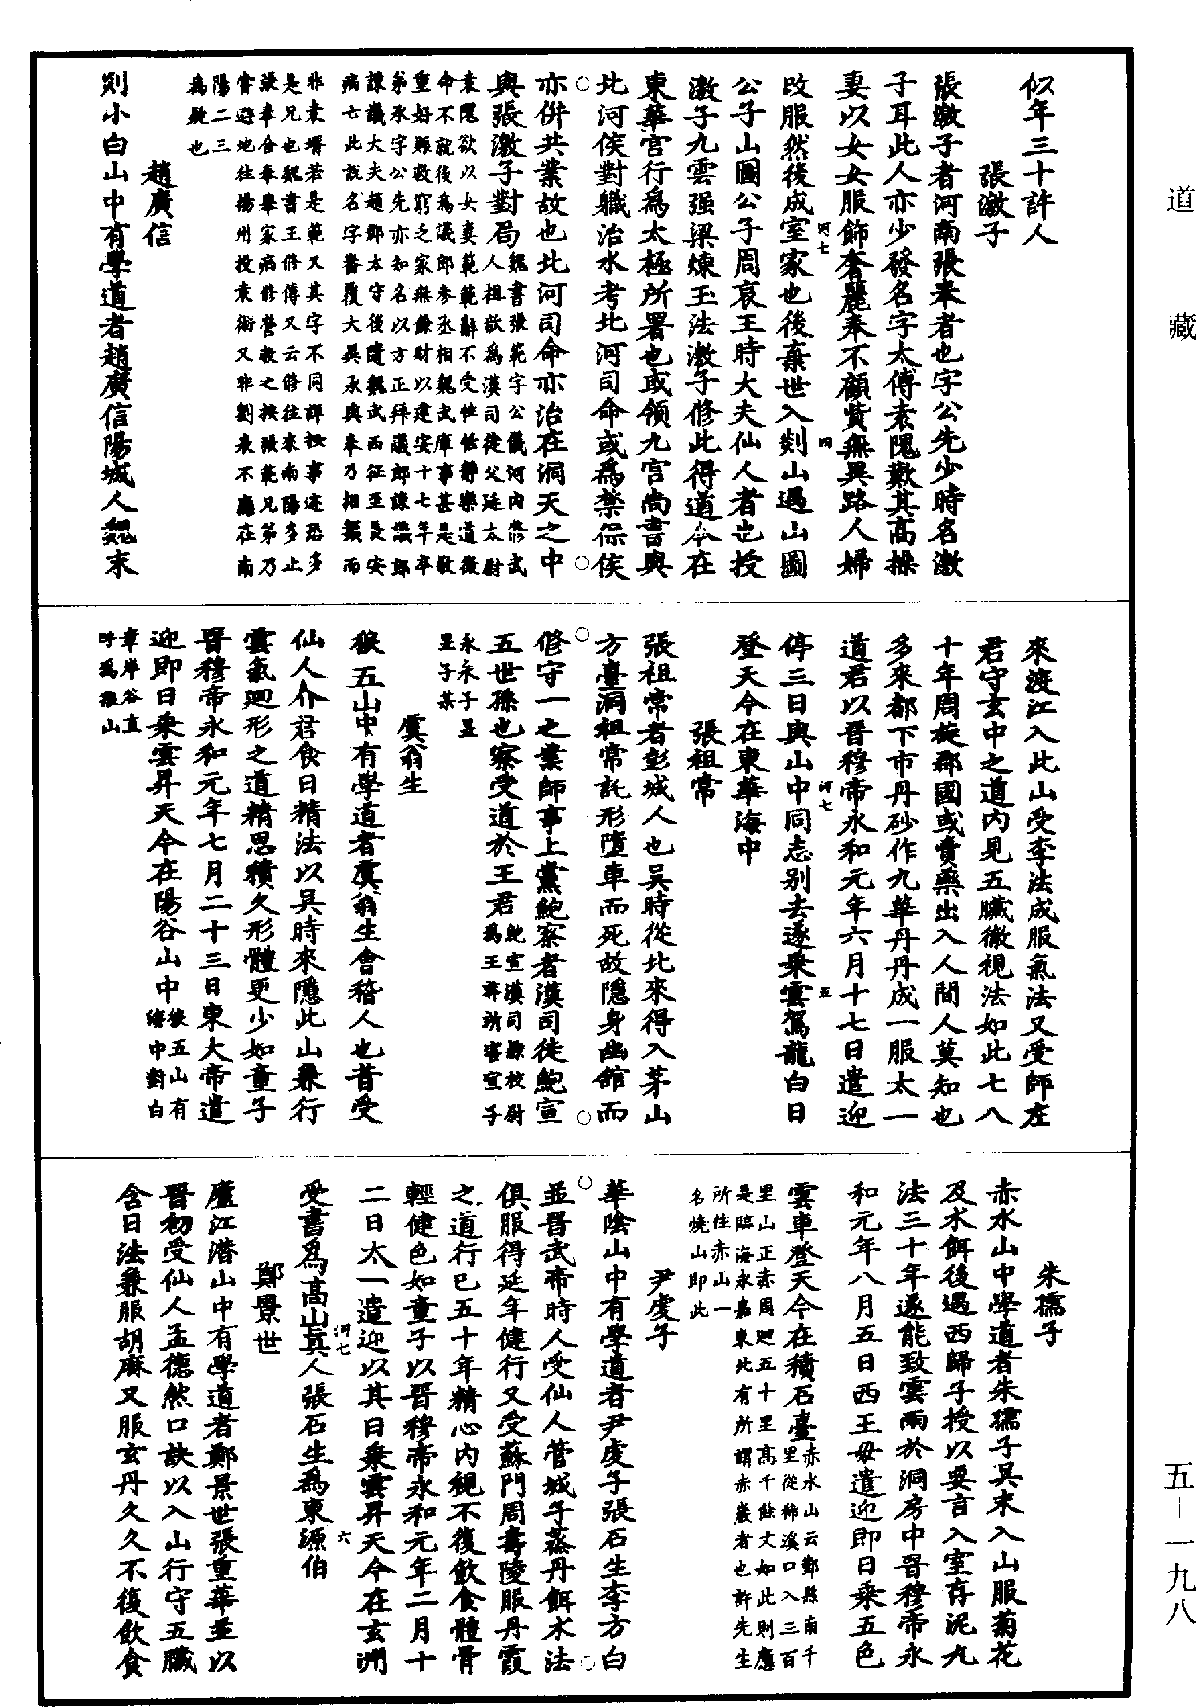 道藏
五—一九八
似年三十許人
張激子
張激子者河南張奉者也字公先少時名激
子耳此人亦少發名字太傅袁隗歎其高操
妻以女女服飾奢麗奉不顧貲無異路人婦
改服然後成室家也後棄世入剡山遇山圖
公子山圖公子周哀王時大夫仙人者也授
激子九雲强梁煉玉法激子修此得道今在
東華宮行為太極所署也或領九宮尚書與
北河侯對職治水考北河司命或為禁保侯
亦併共業故也北河司命亦治在洞天之中
與張激子對局魏書張範字公儀河內修武
人祖歆為漢司徒父延太尉
袁隗欲以女妻範範辭不受性恬靜樂道徵
命不就後為議郎參丞相魏武庫事甚是敬
重好賑救窮乏家無餘財以建安十七年卒
弟承字公先亦知名以方正拜議郎諫議郎
諫議大夫趙郡太守後隨魏武西征至長安
病亡此說名字翻覆大異承與奉乃相類而
非袁壻若是範又其字不同詳於事迹恐多
是兄也魏書王修傳又云修往來南陽多止
張奉舍奉舉家病修營救之按張範兄弟乃
嘗避地往揚州投袁術又非劉表不應在南
陽二三
為疑也
趙廣信
則小白山中有學道者趙廣信陽城人魏末
來渡江入此山受李法成服氣法又受師左
君守玄中之道內見五臟徹視法如此七八
十年周旋郡國或賣藥出入人間人莫知也
多來都下市丹砂作九華丹丹成一服太一
道君以晉穆帝永和元年六月十七日遣迎
停三日與山中同志別去遂乘雲駕龍白日
登天今在東華海中
張祖常
張祖常者彭城人也吳時從北來得入茅山
方臺洞祖常託形墮車而死故隱身幽館而
修守一之業師事上黨鮑察者漢司徒鮑宣
五世孫也察受道於王君鮑宣漢司隸校尉
為王莽所害宣子
永永子昱
昱子某
虞翁生
狼五山中有學道者虞翁生會稽人也昔受
仙人介君食日精法以吳時來隱此山兼行
雲氣迴形之道精思積久形體更少如童子
晉穆帝永和元年七月二十三日東大帝遣
迎即日乘雲昇天今在陽谷山中狼五山有
海中對白
章岸谷直
呼為狼山
朱孺子
赤水山中學道者朱孺子吳末入山服菊花
及朮餌後遇西歸子授以要言入室存泥丸
法三十年遂能致雲雨於洞房中晉穆帝永
和元年八月五日西王母遣迎即日乘五色
雲車登天今在積石臺赤水山云鄞縣南千
里從楠溪口入三百
里山正赤周迴五十里高千餘丈如此則應
是臨海永嘉東北有所謂赤巖者也許先生
所住赤山一
名燒山即此
尹虔子
華陰山中有學道者尹虔子張石生李方白
並晉武帝時人受仙人管城子蒸丹餌朮法
俱服得延年健行又受蘇門周壽陵服丹霞
之道行已五十年精心內視不復飲食體骨
輕健色如童子以晉穆帝永和元年二月十
二日太一遣迎以其日乘雲昇天今在玄洲
受書為高山真人張石生為東源伯
鄭景世
廬江潛山中有學道者鄭景世張重華並以
晉初受仙人孟德然口訣以入山行守五臟
含日法兼服胡麻又服玄丹久久不復飲食